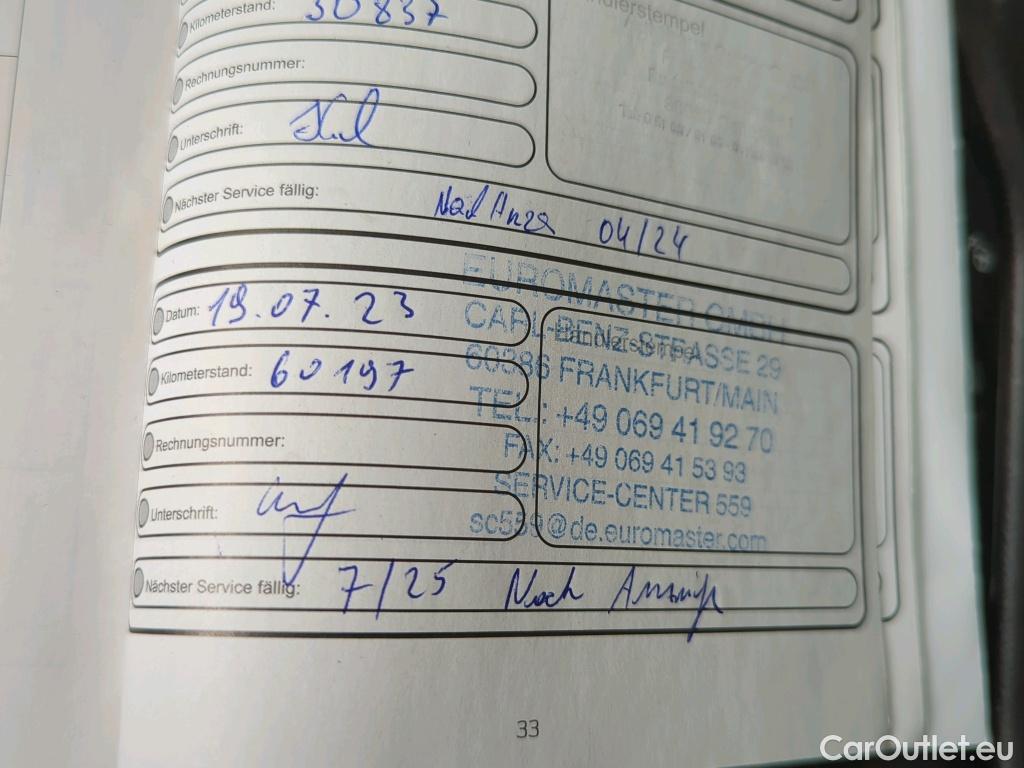 Kilometerstand: 30837
Händlerstempel
Rechnungsnummer:
Unterschrift:
Nächster Service fällig: 04/24
Datum: 19.07.23
Kilometerstand: 60197
Rechnungsnummer:
Unterschrift:
Händlerstempel
EUROMASTER GMBH
CARL-BENZ-STRASSE 29
60386 FRANKFURT/MAIN
TEL.: +49 069 41 92 70
FAX: +49 069 41 53 93
SERVICE-CENTER 559
sc559@de.euromaster.com
Nächster Service fällig: 7/25 Nach Anzeige
33
CarOutlet.eu